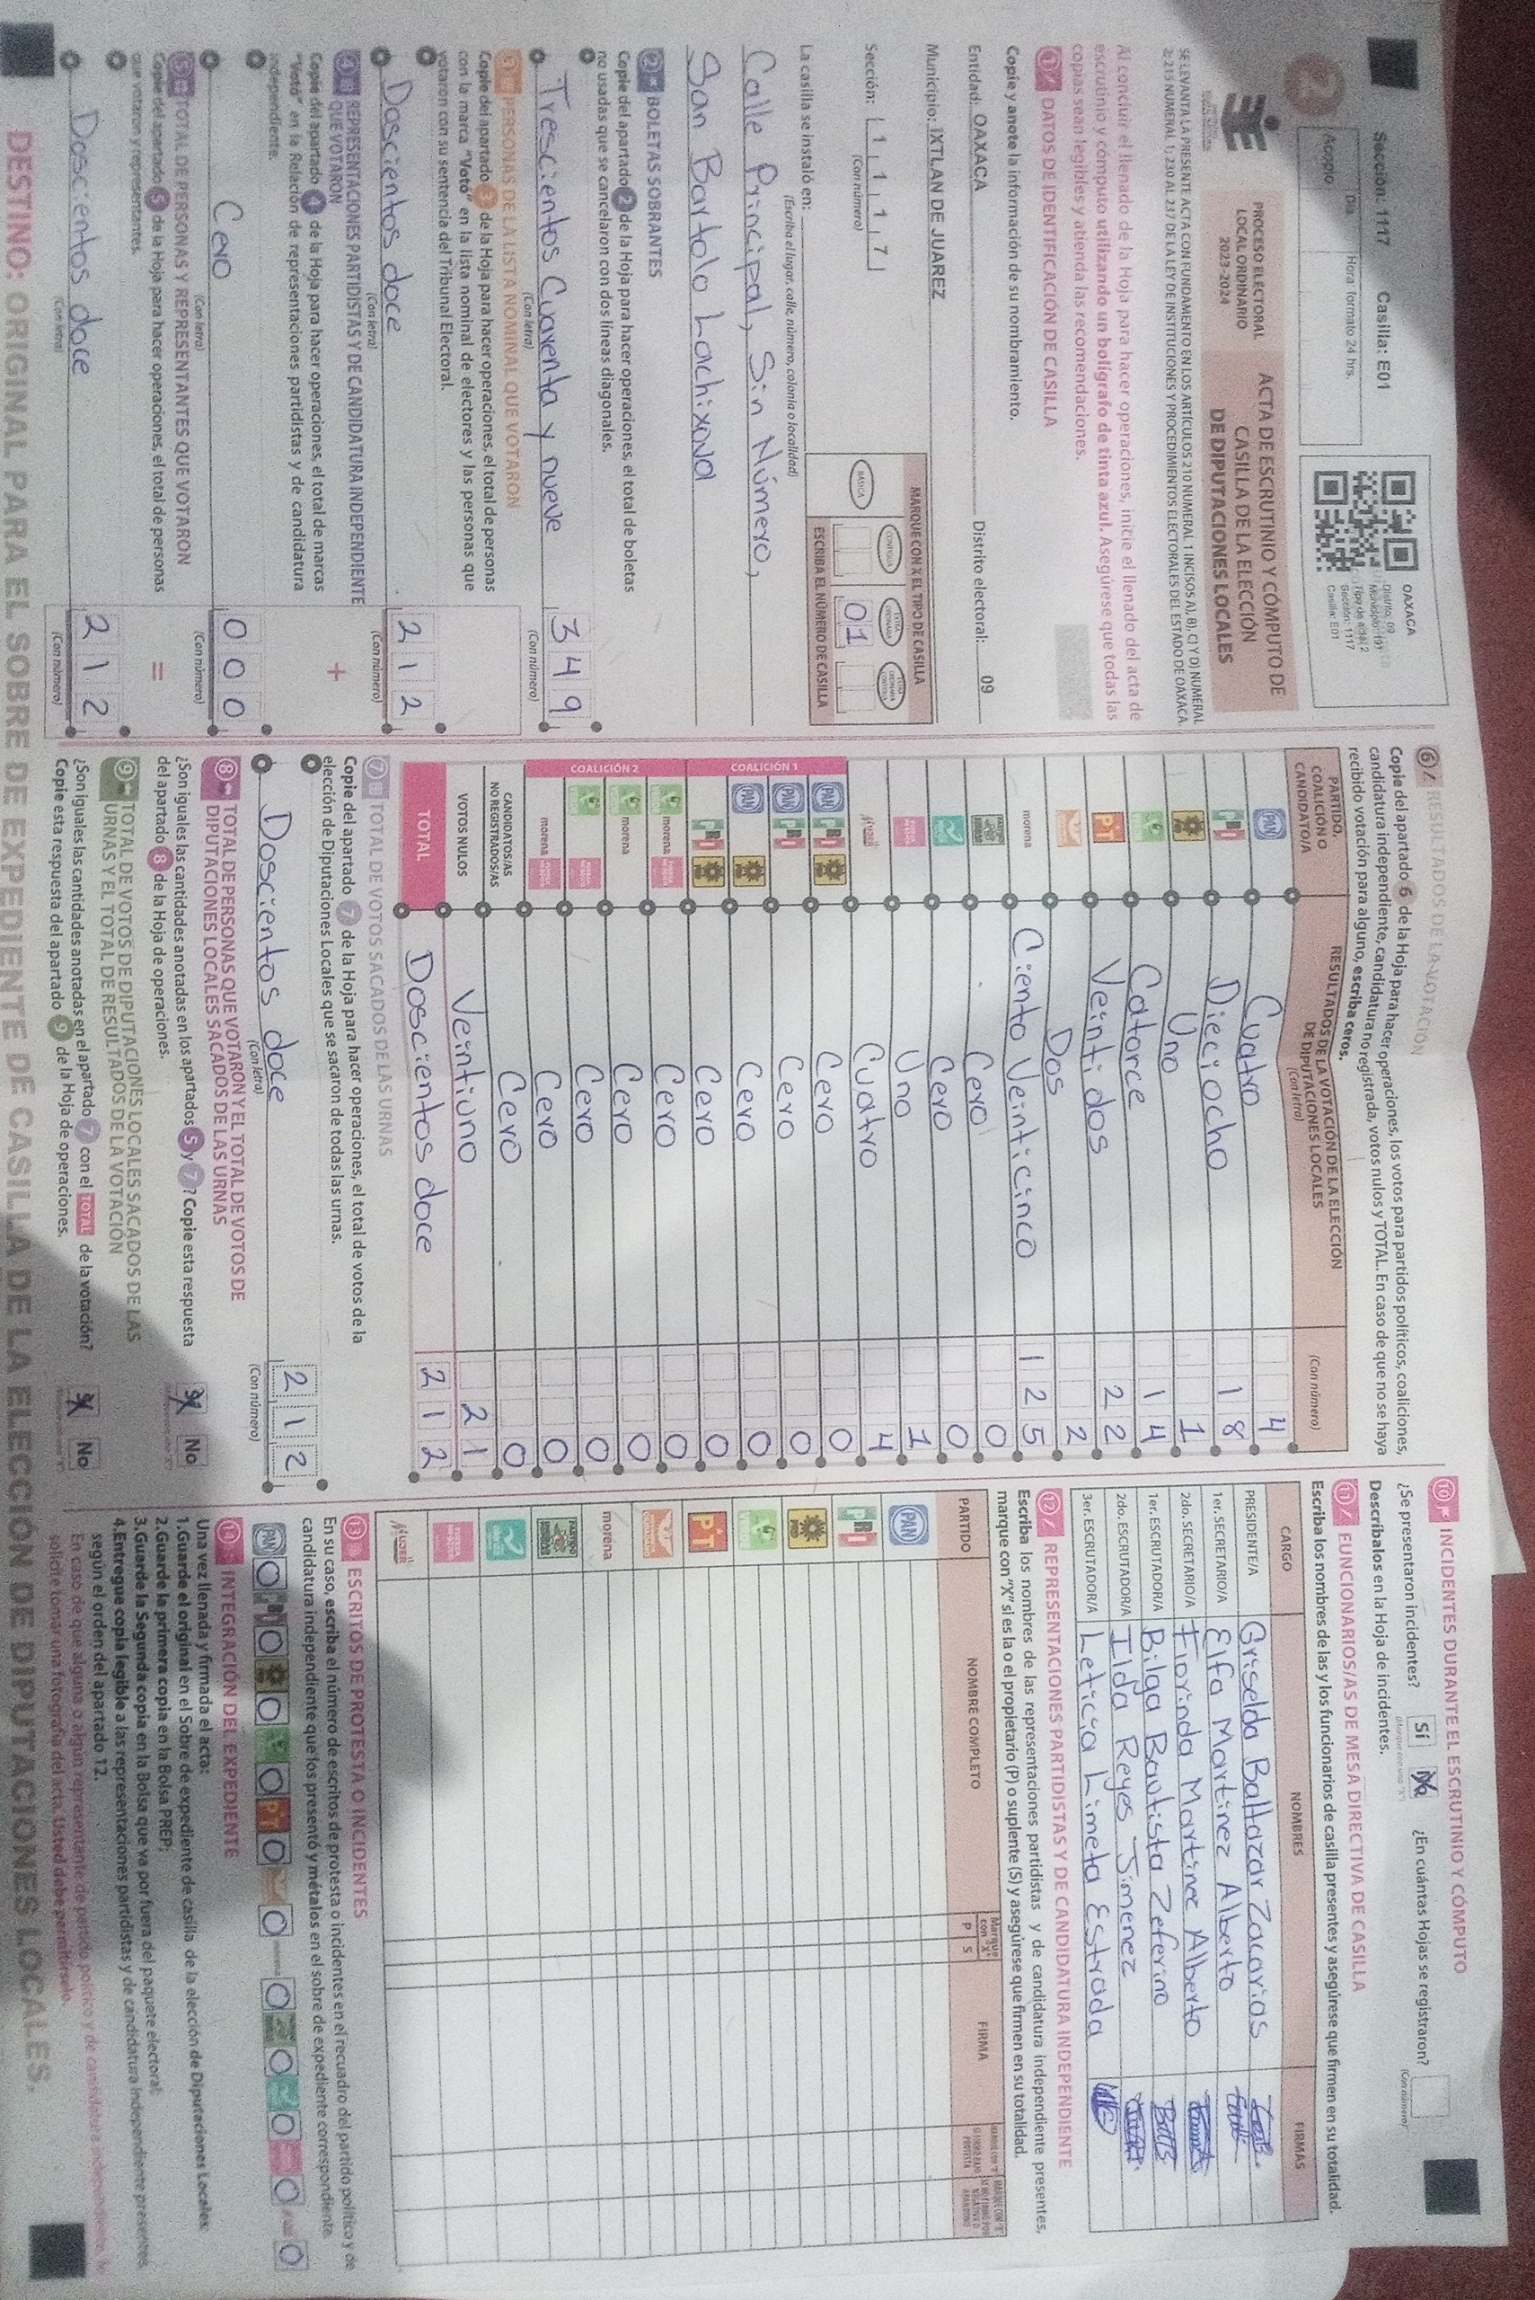 Sección: 1117 Casilla: E01
Acopio
Día
Hora formato 24 hrs.
OAXACA
Distrito: 09
Tipo de acta: 2
Sección: 1117
Casilla: E01
PROCESO ELECTORAL
LOCAL ORDINARIO
2023-2024
ACTA DE ESCRUTINIO Y CÓMPUTO DE
CASILLA DE LA ELECCIÓN
DE DIPUTACIONES LOCALES
SE LEVANTA LA PRESENTE ACTA CON FUNDAMENTO EN LOS ARTÍCULOS 210 NUMERAL 1 INCISOS A), B), C) Y D) NUMERAL
2; 215 NUMERAL 1; 230 AL 237 DE LA LEY DE INSTITUCIONES Y PROCEDIMIENTOS ELECTORALES DEL ESTADO DE OAXACA.
Al concluir el llenado de la Hoja para hacer operaciones, inicie el llenado del acta de
escrutinio y cómputo utilizando un bolígrafo de tinta azul. Asegúrese que todas las
copias sean legibles y atienda las recomendaciones.
1 DATOS DE IDENTIFICACIÓN DE CASILLA
Copie y anote la información de su nombramiento.
Entidad: OAXACA Distrito electoral: 09
Municipio: IXTLAN DE JUAREZ
Sección: 1 1 1 7
(Con número)
MARQUE CON X EL TIPO DE CASILLA
BÁSICA
CONTIGUA
01
ESCRIBA EL NÚMERO DE CASILLA
La casilla se instaló en:
(Escriba el lugar, calle, número, colonia o localidad)
Calle Principal, Sin Número,
San Bartolo Lachixova
2 BOLETAS SOBRANTES
Copie del apartado 2 de la Hoja para hacer operaciones, el total de boletas
no usadas que se cancelaron con dos líneas diagonales.
Trescientos Cuarenta y nueve 3 4 9
(Con letra) (Con número)
3 PERSONAS DE LA LISTA NOMINAL QUE VOTARON
Copie del apartado 3 de la Hoja para hacer operaciones, el total de personas
con la marca "Votó" en la lista nominal de electores y las personas que
votaron con su sentencia del Tribunal Electoral.
Doscientos doce 2 1 2
(Con letra) (Con número)
+
4 REPRESENTACIONES PARTIDISTAS Y DE CANDIDATURA INDEPENDIENTE
QUE VOTARON
Copie del apartado 4 de la Hoja para hacer operaciones, el total de marcas
"Votó" en la Relación de representaciones partidistas y de candidatura
independiente.
Cero 0 0 0
(Con letra) (Con número)
=
5 TOTAL DE PERSONAS Y REPRESENTANTES QUE VOTARON
Copie del apartado 5 de la Hoja para hacer operaciones, el total de personas
que votaron y representantes.
Doscientos doce 2 1 2
(Con letra) (Con número)
6 RESULTADOS DE LA VOTACIÓN
Copie del apartado 6 de la Hoja para hacer operaciones, los votos para partidos políticos, coaliciones,
candidatura independiente, candidatura no registrada, votos nulos y TOTAL. En caso de que no se haya
recibido votación para alguno, escriba ceros.
PARTIDO,
COALICIÓN O
CANDIDATO/A
RESULTADOS DE LA VOTACIÓN DE LA ELECCIÓN
DE DIPUTACIONES LOCALES
(Con letra)
(Con número)
PAN Cuatro 4
PRI Dieciocho 18
PRD Uno 1
VERDE Catorce 14
PT Veinti dos 22
Dos 2
morena Ciento Veinticinco 125
Cero 0
Cero 0
Uno 1
MUJER Cuatro 4
COALICIÓN 1
PAN PRI PRD Cero 0
PAN PRI Cero 0
PAN PRD Cero 0
PRI PRD Cero 0
COALICIÓN 2
morena Cero 0
morena Cero 0
Cero 0
morena Cero 0
CANDIDATOS/AS
NO REGISTRADOS/AS Cero 0
VOTOS NULOS Veintiuno 21
TOTAL Doscientos doce 2 1 2
7 TOTAL DE VOTOS SACADOS DE LAS URNAS
Copie del apartado 7 de la Hoja para hacer operaciones, el total de votos de la
elección de Diputaciones Locales que se sacaron de todas las urnas.
Doscientos doce 2 1 2
(Con letra) (Con número)
8 TOTAL DE PERSONAS QUE VOTARON Y EL TOTAL DE VOTOS DE
DIPUTACIONES LOCALES SACADOS DE LAS URNAS
¿Son iguales las cantidades anotadas en los apartados 5 y 7? Copie esta respuesta
del apartado 8 de la Hoja de operaciones.
Sí No
9 TOTAL DE VOTOS DE DIPUTACIONES LOCALES SACADOS DE LAS
URNAS Y EL TOTAL DE RESULTADOS DE LA VOTACIÓN
¿Son iguales las cantidades anotadas en el apartado 7 con el TOTAL de la votación?
Copie esta respuesta del apartado 9 de la Hoja de operaciones.
Sí No
10 INCIDENTES DURANTE EL ESCRUTINIO Y CÓMPUTO
¿Se presentaron incidentes? Sí No ¿En cuántas Hojas se registraron?
(Con número)
Descríbalos en la Hoja de incidentes.
11 FUNCIONARIOS/AS DE MESA DIRECTIVA DE CASILLA
Escriba los nombres de las y los funcionarios de casilla presentes y asegúrese que firmen en su totalidad.
CARGO NOMBRES FIRMAS
PRESIDENTE/A Griselda Baltazar Zacarias
1er. SECRETARIO/A Elfa Martinez Alberto
2do. SECRETARIO/A Florinda Martinez Alberto
1er. ESCRUTADOR/A Bilga Bautista Zeferino
2do. ESCRUTADOR/A Ilda Reyes Jimenez
3er. ESCRUTADOR/A Leticia Limeta Estrada
12 REPRESENTACIONES PARTIDISTAS Y DE CANDIDATURA INDEPENDIENTE
Escriba los nombres de las representaciones partidistas y de candidatura independiente presentes,
marque con "X" si es la o el propietario (P) o suplente (S) y asegúrese que firmen en su totalidad.
PARTIDO NOMBRE COMPLETO Marque con "X" P S FIRMA
PAN
PRI
PRD
VERDE
PT
morena
MUJER
13 ESCRITOS DE PROTESTA O INCIDENTES
En su caso, escriba el número de escritos de protesta o incidentes en el recuadro del partido político y de
candidatura independiente que los presentó y métalos en el sobre de expediente correspondiente.
PAN PT
14 INTEGRACIÓN DEL EXPEDIENTE
Una vez llenada y firmada el acta:
1.Guarde el original en el Sobre de expediente de casilla de la elección de Diputaciones Locales;
2.Guarde la primera copia en la Bolsa PREP;
3.Guarde la Segunda copia en la Bolsa que va por fuera del paquete electoral;
4.Entregue copia legible a las representaciones partidistas y de candidatura independiente presentes,
según el orden del apartado 12.
En caso de que alguna o algún representante de partido político y de candidatura independiente, le
solicite tomar una fotografía del acta, Usted debe permitírselo.
DESTINO: ORIGINAL PARA EL SOBRE DE EXPEDIENTE DE CASILLA DE LA ELECCIÓN DE DIPUTACIONES LOCALES.